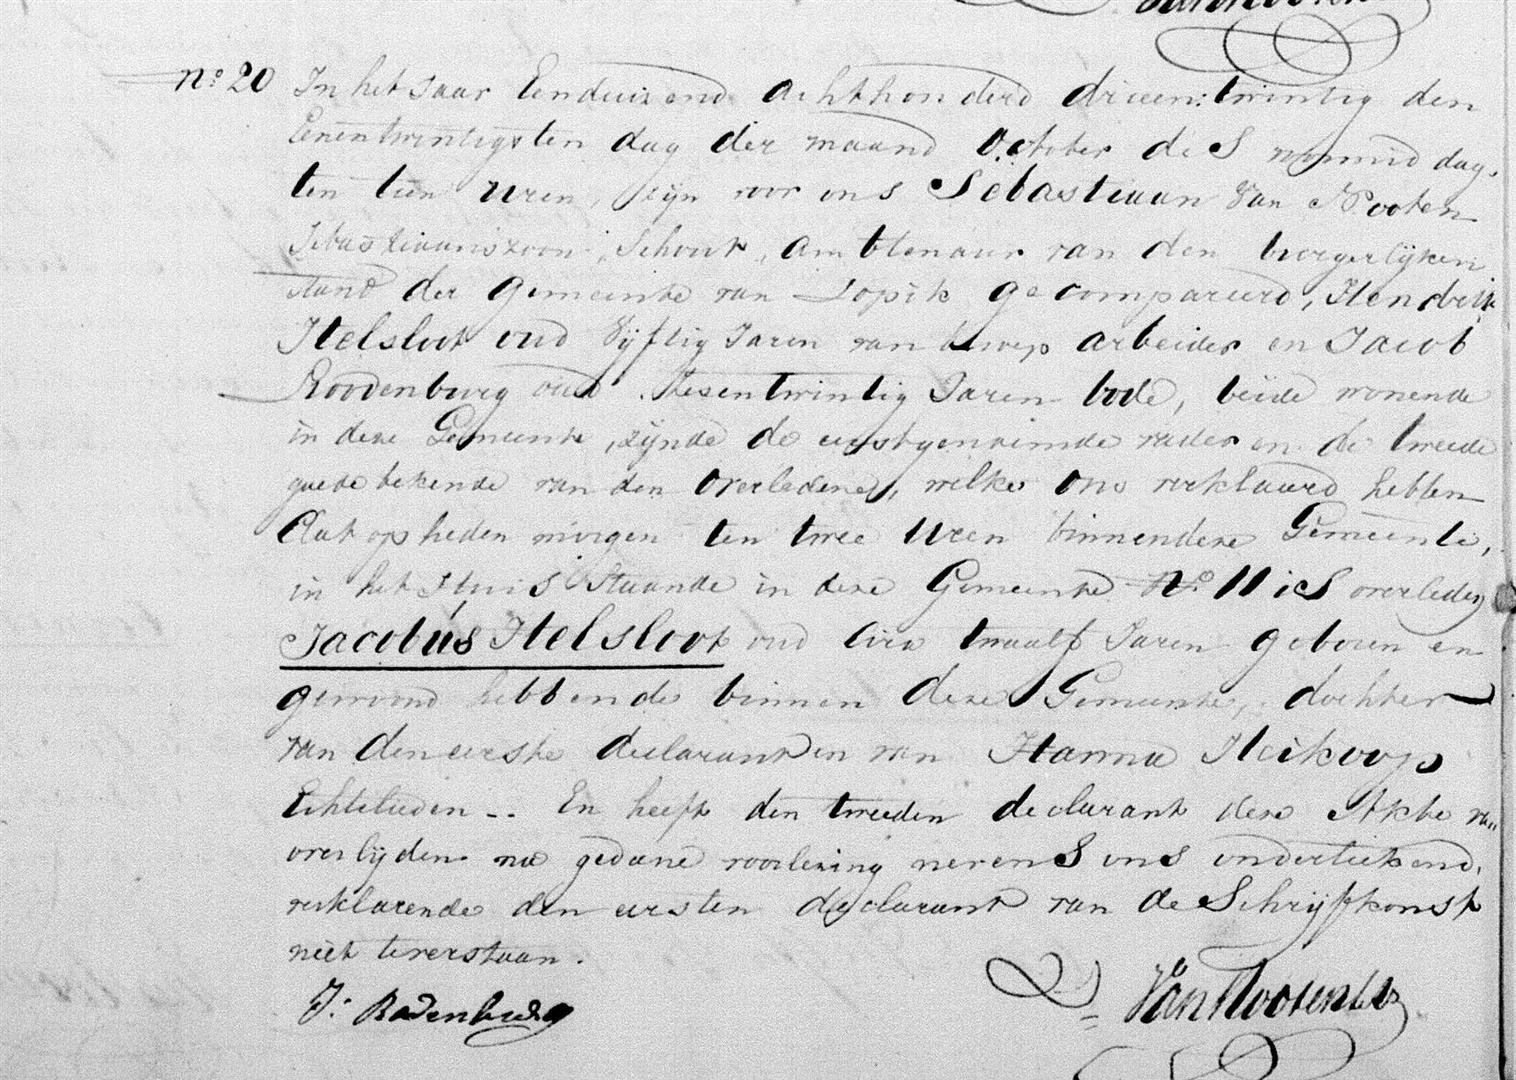 No 20 In het Jaar Eenduizend achthonderd drieentwintig den
Eenentwintigsten dag der maand October des namiddag
ten tien uren, zijn voor ons Sebastiaan Van Nooten
Sebastiaanszoon, Schout, ambtenaar van den burgerlijken
stand der Gemeente van Lopik gecompareerd, Hendrik
Helsloot oud Vijftig Jaren van beroep arbeider en Jacob
Roodenburg oud Zesentwintig Jaren bode, beide wonende
in deze Gemeente, zijnde de eerstgenoemde vader en de tweede
goede bekende van den Overledene, welke ons verklaard hebben
dat op heden morgen ten twee Uren binnen deze Gemeente,
in het Huis Staande in deze Gemeente No 11 is overleden
Jacobús Helsloot oud circa twaalf Jaren geboren en
gewoond hebbende binnen deze Gemeente, dochter
van den eerste declarant en van Hanna Heikoop
Echtelieden -- En heeft den tweeden declarant deze Akte van
overlijden na gedane voorlezing nevens ons ondertekend,
verklarende den eersten declarant van de Schrijfkonst
niet te verstaan.
J: Rodenburg Van Nooten